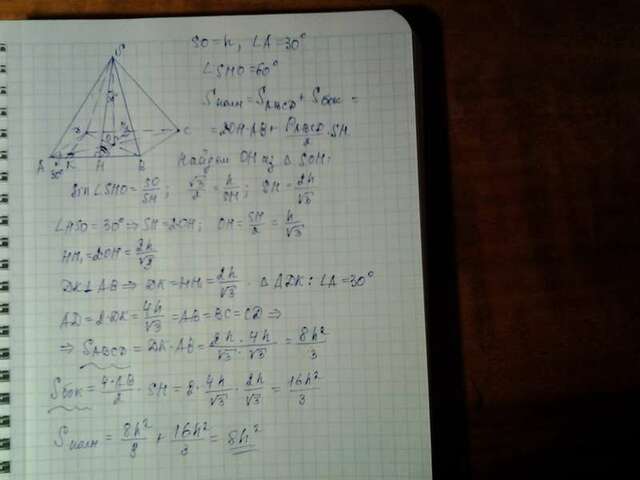 SO = h, ∠A = 30°
∠SHO = 60°
Sполн = SABCD + Sбок =
= 2OH·AB + PABCD/2 · SH
Найдём OH из △SOH:
sin∠SHO = SO/SH; √3/2 = h/SH; SH = 2h/√3
∠HSO = 30° ⇒ SH = 2OH; OH = SH/2 = h/√3
HH₁ = 2OH = 2h/√3
DK⊥AB ⇒ DK = HH₁ = 2h/√3. △ADK: ∠A = 30°
AD = 2·DK = 4h/√3 = AB = BC = CD ⇒
⇒ SABCD = DK·AB = 2h·4h/√3·√3 = 8h²/3
Sбок = 4·AB/2 · SH = 2·4h/√3 · 2h/√3 = 16h²/3
Sполн = 8h²/3 + 16h²/3 = 8h²
S
A
30°
K
H
B
C
D